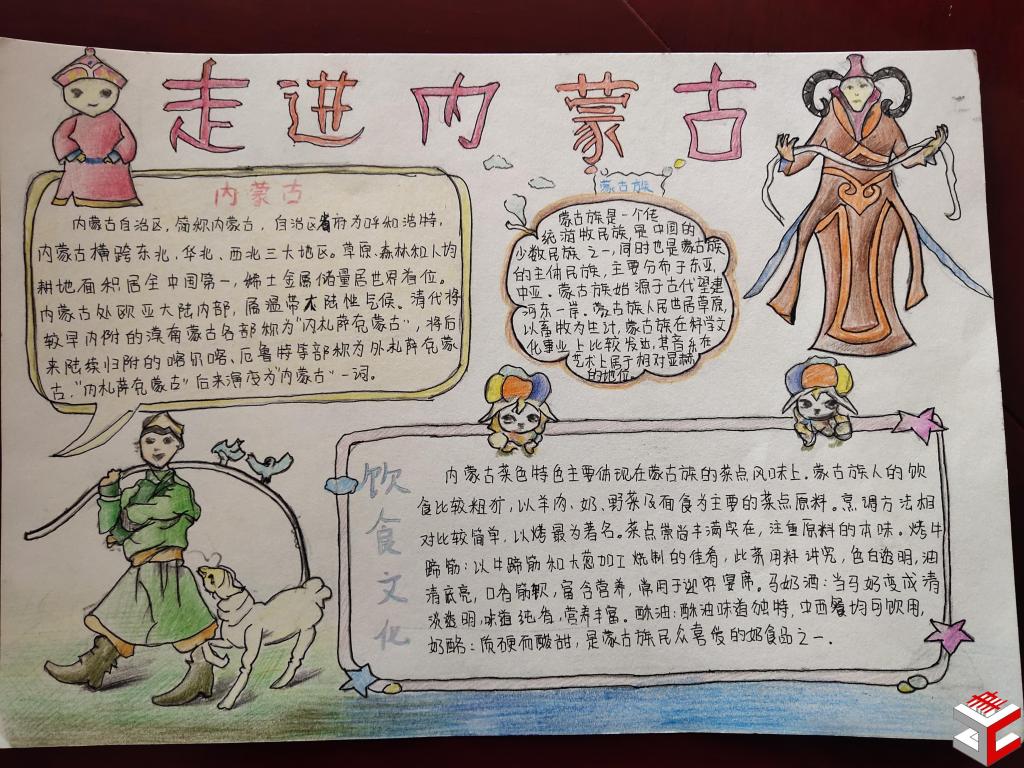 走进内蒙古
内蒙古
内蒙古自治区，简称内蒙古，自治区首府为呼和浩特，
内蒙古横跨东北、华北、西北三大地区。草原、森林和人均
耕地面积居全中国第一，稀土金属储量居世界首位。
内蒙古处欧亚大陆内部，属温带大陆性气候。清代将
较早内附的漠南蒙古各部称为“内札萨克蒙古”，将后
来陆续归附的喀尔喀、厄鲁特等部称为外札萨克蒙
古，“内札萨克蒙古”后来演变为“内蒙古”一词。
蒙古族
蒙古族是一个传
统游牧民族，是中国的
少数民族之一，同时也是蒙古族
的主体民族，主要分布于东亚，
中亚。蒙古族始源于古代望建
河东一岸。蒙古族人民世居草原，
以畜牧为生计，蒙古族在科学文
化事业上比较发达，其音乐在
艺术上属于相对显赫
的地位。
饮食文化
内蒙古菜色特色主要体现在蒙古族的菜点风味上。蒙古族人的饮
食比较粗犷，以羊肉、奶、野菜及面食为主要的菜点原料。烹调方法相
对比较简单，以烤最为著名。菜点崇尚丰满实在，注重原料的本味。烤牛
蹄筋：以牛蹄筋和大葱加工烧制的佳肴，此菜用料讲究，色白透明，油
清底亮，口香筋软，富含营养，常用于迎宾宴席。马奶酒：当马奶变成清
淡透明，味道纯香，营养丰富。酥油：酥油味道独特，中西餐均可饮用，
奶酪：质硬而酸甜，是蒙古族民众喜爱的奶食品之一。